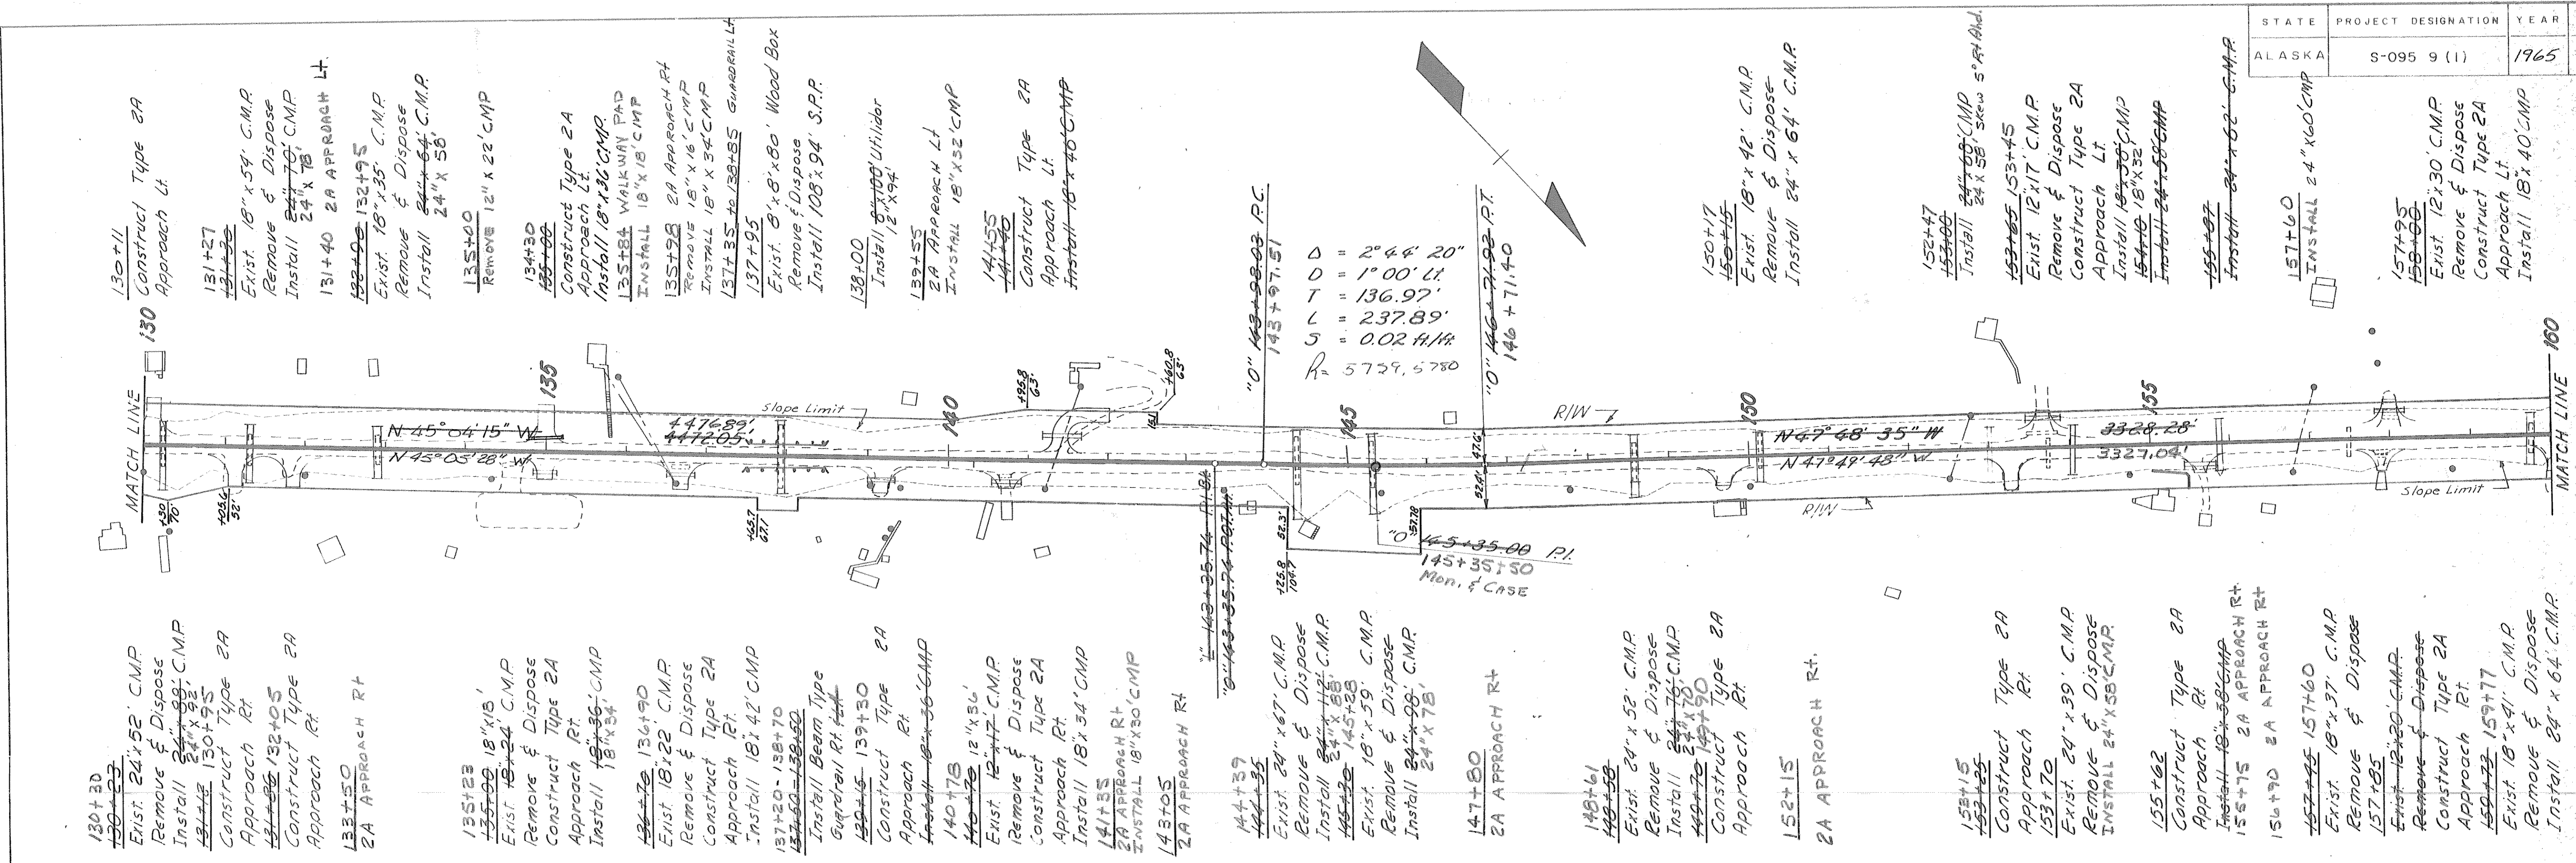 STATE PROJECT DESIGNATION YEAR
ALASKA S-095 9 (1) 1965
130+11
Construct Type 2A
Approach Lt.
131+27
131+30
Exist. 18"x54' C.M.P.
Remove & Dispose
Install 24"x70' C.M.P.
24"x78'
131+40 2A APPROACH Lt.
132+90 132+95
Exist. 18"x35' C.M.P.
Remove & Dispose
Install 24"x64' C.M.P.
24"x58'
135+00
Remove 12"x22' CMP
134+30
135+00
Construct Type 2A
Approach Lt.
Install 18"x36' CMP.
135+84 WALKWAY PAD
INSTALL 18"x18' CMP
135+98 2A APPROACH Rt
REMOVE 18"x16' CMP
INSTALL 18"x34' CMP
137+35 to 138+85 GUARDRAIL Lt
137+95
Exist. 8'x8'x80' Wood Box
Remove & Dispose
Install 108"x94' S.P.P.
138+00
Install 8"x100' Utilidor
12"x94'
139+55
2A APPROACH Lt
INSTALL 18"x32' CMP
141+55
141+40
Construct Type 2A
Approach Lt.
Install 18"x40' CMP
"O" 143+98.03 P.C.
143+97.51
Δ = 2°44'20"
D = 1°00' Lt.
T = 136.97'
L = 237.89'
S = 0.02 ft/ft
R= 5729.5780
"O" 146+71.92 P.T.
146+71.40
150+17
150+15
Exist. 18"x42' C.M.P.
Remove & Dispose
Install 24"x64' C.M.P.
152+47
153+00
Install 24"x68' CMP
24x58' Skew 5° Rt Ahd.
153+65 153+45
Exist. 12"x17' C.M.P.
Remove & Dispose
Construct Type 2A
Approach Lt
Install 18"x38' CMP
154+10 18"x32'
Install 24"x58' CMP
155+87
Install 24"x62' C.M.P.
157+60
INSTALL 24"x60' CMP
157+95
158+00
Exist. 12"x30' C.M.P.
Remove & Dispose
Construct Type 2A
Approach Lt.
Install 18"x40' CMP
MATCH LINE 130
135
140
145
150
155
MATCH LINE 160
N 45°04'15" W
N 45°05'28" W
4476.89'
4472.05'
Slope Limit
+95.8
63'
+60.8
63'
R/W
47.6'
52.4'
N 47°48'35" W
N 47°49'48" W
3328.28'
3327.04'
Slope Limit
R/W
+30
70'
+05.6
52'
+65.7
67.1
52.3'
+25.8
104.7
57.78
"O" 145+35.00 P.I.
145+35+50
Mon. & CASE
"O" 143+35.74 P.O.T. Ah.
130+30
130+23
Exist. 24"x52' C.M.P.
Remove & Dispose
Install 24"x88' C.M.P.
24"x92'
130+95
Construct Type 2A
Approach Rt
131+86 132+05
Construct Type 2A
Approach Rt
133+50
2A APPROACH Rt
135+23
135+00 18"x18'
Exist 18"x24' C.M.P.
Remove & Dispose
Construct Type 2A
Approach Rt.
Install 18"x36' CMP
18"x34'
136+70 136+90
Exist. 18"x22' C.M.P.
Remove & Dispose
Construct Type 2A
Approach Rt.
Install 18"x42' CMP
137+20-138+70
137+50-138+50
Install Beam Type
Guardrail Rt. & Lt
139+15 139+30
Construct Type 2A
Approach Rt
Install 18"x36' CMP
140+78
140+70 12"x36'
Exist. 12"x17' C.M.P.
Remove & Dispose
Construct Type 2A
Approach Rt
Install 18"x34' CMP
141+35
2A APPROACH Rt
INSTALL 18"x30' CMP
143+05
2A APPROACH Rt
144+39
144+35
Exist. 24"x67' C.M.P.
Remove & Dispose
Install 24"x112' C.M.P.
24"x88'
145+30 145+28
Exist. 18"x59' C.M.P.
Remove & Dispose
Install 24"x98' C.M.P.
24"x78'
147+80
2A APPROACH Rt
148+61
148+58
Exist. 24"x52' C.M.P.
Remove & Dispose
Install 24"x76' C.M.P.
24"x70'
149+70 149+90
Construct Type 2A
Approach Rt
152+15
2A APPROACH Rt.
153+15
153+25
Construct Type 2A
Approach Rt
153+70
Exist. 24"x39' C.M.P.
Remove & Dispose
INSTALL 24"x58' CMP.
155+62
Construct Type 2A
Approach Rt
Install 18"x38' CMP
155+75 2A APPROACH Rt
156+90 2A APPROACH Rt
157+45 157+60
Exist. 18"x37' C.M.P.
Remove & Dispose
157+85
Exist. 12"x20' C.M.P.
Remove & Dispose
Construct Type 2A
Approach Rt.
159+73 159+77
Exist 18"x41' C.M.P.
Remove & Dispose
Install 24"x64' C.M.P.